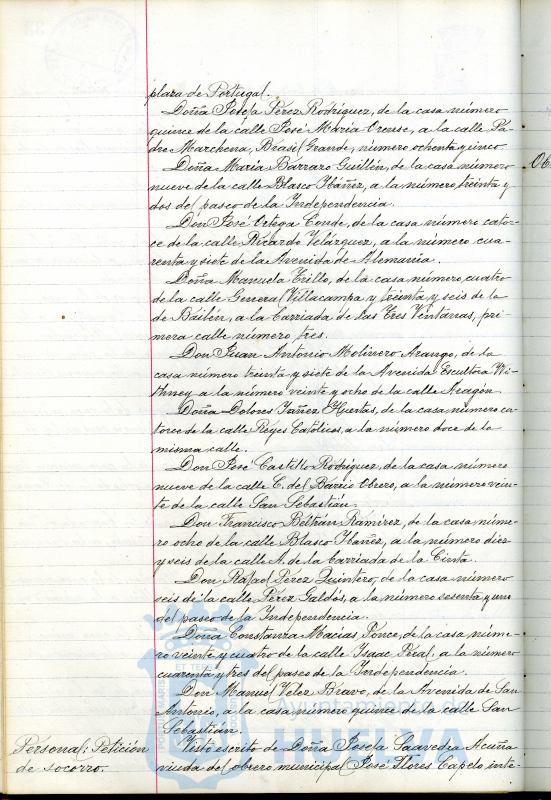 plaza de Portugal.
Doña Josefa Pérez Rodríguez, de la casa número
quince de la calle José María Orense, a la calle Pa-
dre Marchena, Brasil Grande, número ochenta y cinco.
Doña María Barraro Guillén, de la casa número
nueve de la calle Blasco Ibáñez, a la número treinta y
dos del paseo de la Independencia.
Don José Ortega Conde, de la casa número cator-
ce de la calle Ricardo Velázquez, a la número cua-
renta y siete de la Avenida de Alemania.
Doña Manuela Trillo, de la casa número cuatro
de la calle General Villacampa y treinta y seis de la
de Bailén, a la barriada de las Tres Ventanas, pri-
mera calle número tres.
Don Juan Antonio Molinero Arango, de la
casa número treinta y siete de la Avenida Escultora Wi-
thney a la número veinte y ocho de la calle Aragón.
Doña Dolores Yañez Huertas, de la casa número ca-
torce de la calle Reyes Católicos, a la número doce de la
misma calle.
Don José Castillo Rodríguez, de la casa número
nueve de la calle C. del Barrio Obrero, a la número vein-
te de la calle San Sebastián.
Don Francisco Beltrán Ramírez, de la casa núme-
ro ocho de la calle Blasco Ibañez, a la número diez
y seis de la calle A. de la barriada de la Cinta.
Don Rafael Pérez Quintero, de la casa número
seis de la calle Pérez Galdós, a la número sesenta y uno
del paseo de la Independencia.
Doña Constanza Macías Ponce, de la casa núme-
ro veinte y cuatro de la calle Isaac Peral, a la número
cuarenta y tres del paseo de la Independencia.
Don Manuel Velez Bravo, de la Avenida de San
Antonio, a la casa número quince de la calle San
Sebastián.
Personal: Petición
de socorro.
Visto escrito de Doña Josefa Saavedra Acuña
viuda del obrero municipal José Flores Capelo inte-
06
Ayuntamiento de
HUELVA